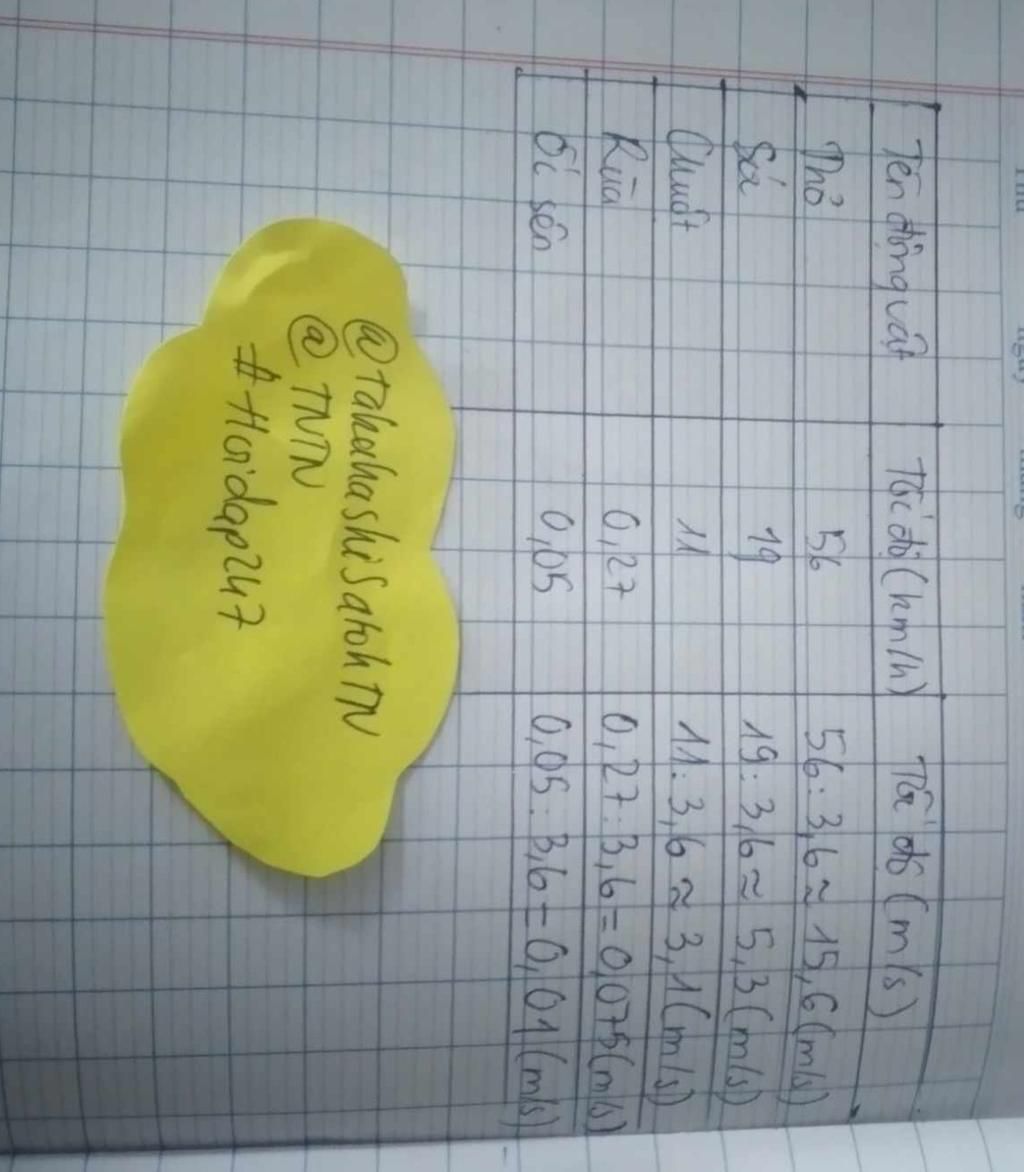 Tên động vật Tốc độ (km/h) Tốc độ (m/s)
Thỏ 56 56 : 3,6 ≈ 15,6 (m/s)
Sóc 19 19 : 3,6 ≈ 5,3 (m/s)
Chuột 11 11 : 3,6 ≈ 3,1 (m/s)
Rùa 0,27 0,27 : 3,6 = 0,075 (m/s)
Ốc sên 0,05 0,05 : 3,6 = 0,01 (m/s)
@takahashiSatohTN
@TNTN
#Hoidap247